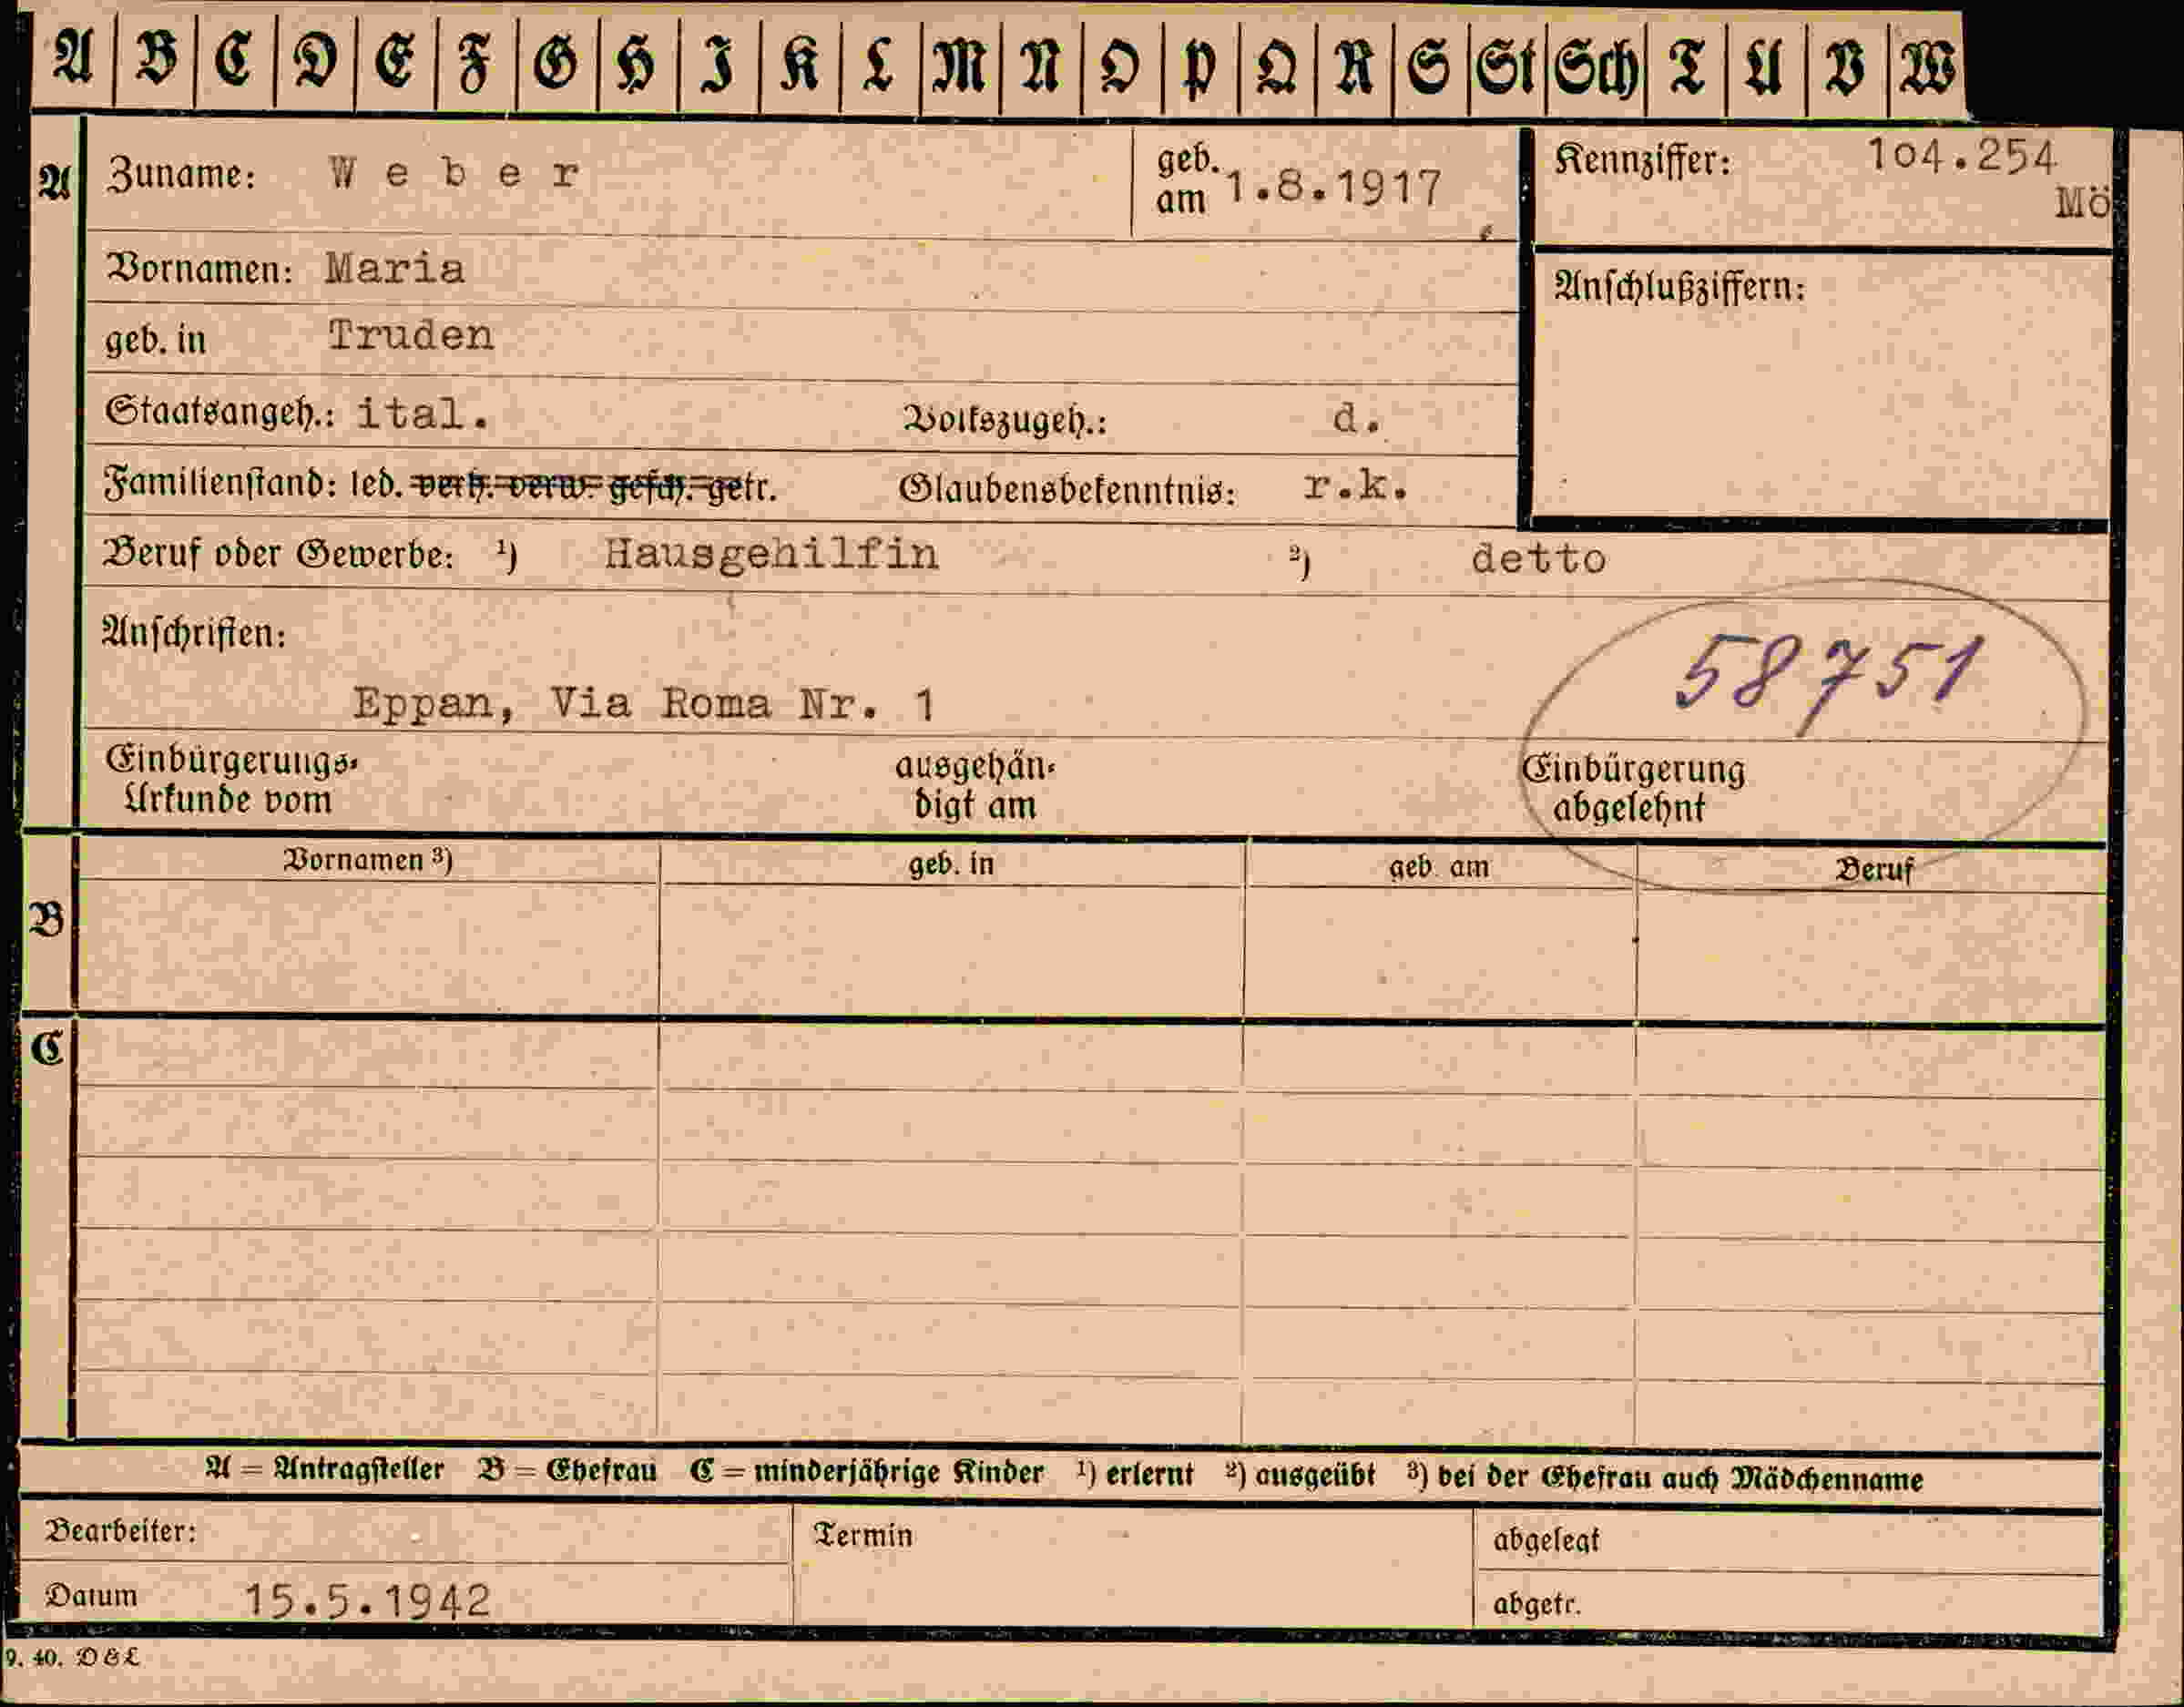 A B C D E F G H I K L M N O P Q R S St Sch T U V W
A Zuname: Weber geb. am 1.8.1917 Kennziffer: 104.254
Mö
Vornamen: Maria Anschlußziffern:
geb. in Truden
Staatsangeh.: ital. Volkszugeh.: d.
Familienstand: led. verh. verw. gesch. getr. Glaubensbekenntnis: r.k.
Beruf oder Gewerbe: ¹) Hausgehilfin ²) detto
Anschriften: 58751
Eppan, Via Roma Nr. 1
Einbürgerungs- ausgehän- Einbürgerung
Urkunde vom digt am abgelehnt
Vornamen ³) geb. in geb. am Beruf
B
C
A = Antragsteller B = Ehefrau C = minderjährige Kinder ¹) erlernt ²) ausgeübt ³) bei der Ehefrau auch Mädchenname
Bearbeiter: Termin abgelegt
Datum 15.5.1942 abgetr.
9. 40. D & L